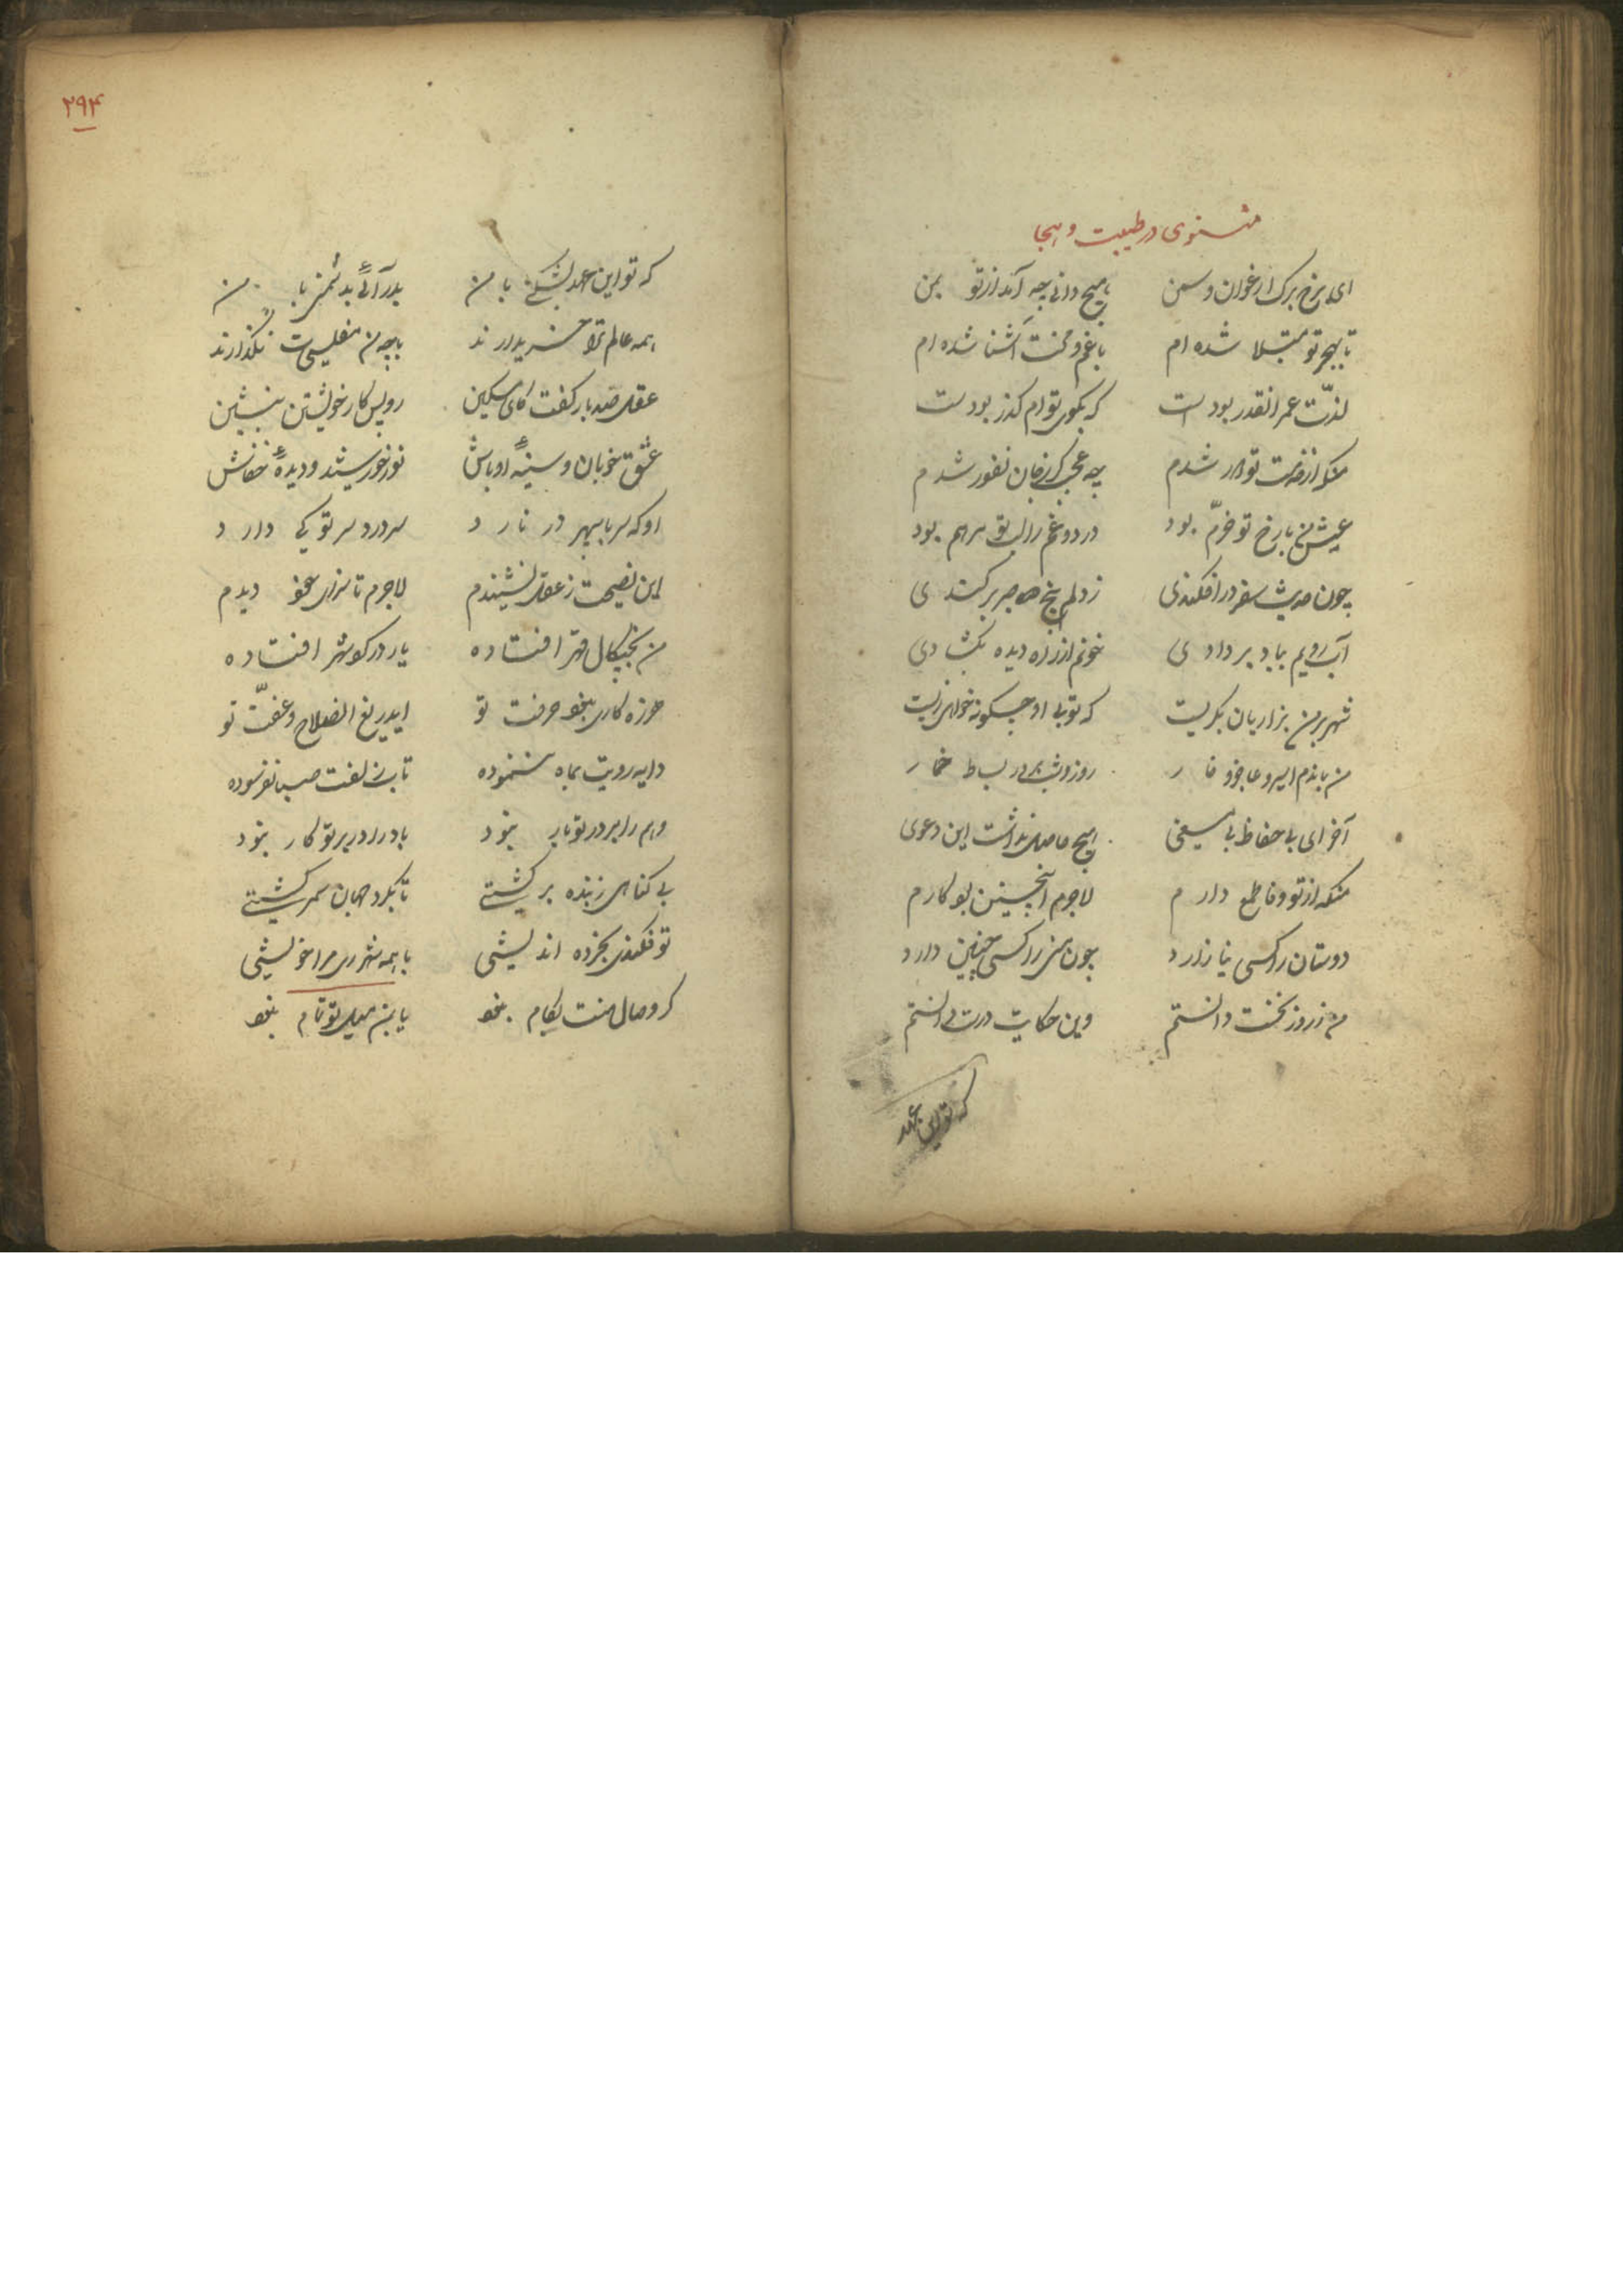 مثنوی در طیبت و هجا
ای برخ برک ارغوان و سمن هیچ دانی چه آمد از تو بمن
تا بهجر تو مبتلا شده ام با غم و محنت آشنا شده ام
لذت عمر انقدر بودست که بکوی توام کذر بودست
منکه از خدمت تو دور شدم چه عجب کر ز جان نفور شدم
عیش من با رخ تو خرّم بود درد و غم را لب تو مرهم بود
چون حدیث سفر در افکندی ز دلم بیخ صبر برکندی
آب رویم بباد بر دادی خونم از راه دیده بکشادی
شهر بر من بزاریان بکریست که تو بی او چکونه خواهی زیست
من بماندم اسیر و عاجز و روز و شب در بساط
آخر ای بی حفاظ بی معنی هیچ حاصل نداشت این دعوی
منکه از تو وفا طمع دارم لاجرم اینچنین بود کارم
دوستان را کسی نیازارد چون منی را کسی چنین دارد
من ز روز نخست دانستم وین حکایت درست دانستم
که تو این عهد
۲۹۴
که تو این عهد بشکنی با من بدر آئی بدشمنی با من
همه عالم ترا خریدارند با چو من مفلسیت نکذارند
عقل صد بار کفت کای مسکین رو پس کار خویشتن بنشین
عشق خوبان و سینهٔ اوباش نور خورشید و دیدهٔ خفاش
او که سر با سپهر در نارد سر درد سر تو کی دارد
این نصیحت ز عقل نشنیدم لاجرم تا سزای خود دیدم
من بچنکال قهر افتاده یار در کو شهر افتاده
کاری نبود حرفت تو ایدریغ انصلاح و عفّت تو
دایه رویت بماه ننموده تاب زلفت صبا نفرسوده
وهم را بر در تو بار نبود باد را در بر تو کار نبود
بی کناهی ز بنده برکشتی تا بکرد جهان سمر کشتی
تو فکندی بخرده اندیشی با همه شهر مرا خویشی
کر وصال منت بکام نبود با من میل تو تمام نبود